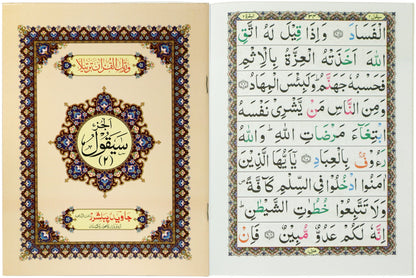 ورتل القرآن ترتيلا
الجزء
سَيَقُولُ
(٢)
جاوید پبلشرز
الْفَسَادَ ۝ وَاِذَا قِيْلَ لَهُ اتَّقِ
اللّٰهَ اَخَذَتْهُ الْعِزَّةُ بِالْاِثْمِ
فَحَسْبُهٗ جَهَنَّمُ ؕ وَلَبِئْسَ الْمِهَادُ ۝
وَمِنَ النَّاسِ مَنْ يَّشْرِيْ نَفْسَهُ
ابْتِغَآءَ مَرْضَاتِ اللّٰهِ ؕ وَاللّٰهُ
رَءُوْفٌۢ بِالْعِبَادِ ۝ يٰٓاَيُّهَا الَّذِيْنَ
اٰمَنُوا ادْخُلُوْا فِي السِّلْمِ كَآفَّةً ۪
وَّلَا تَتَّبِعُوْا خُطُوٰتِ الشَّيْطٰنِ ؕ
اِنَّهٗ لَكُمْ عَدُوٌّ مُّبِيْنٌ ۝ فَاِنْ